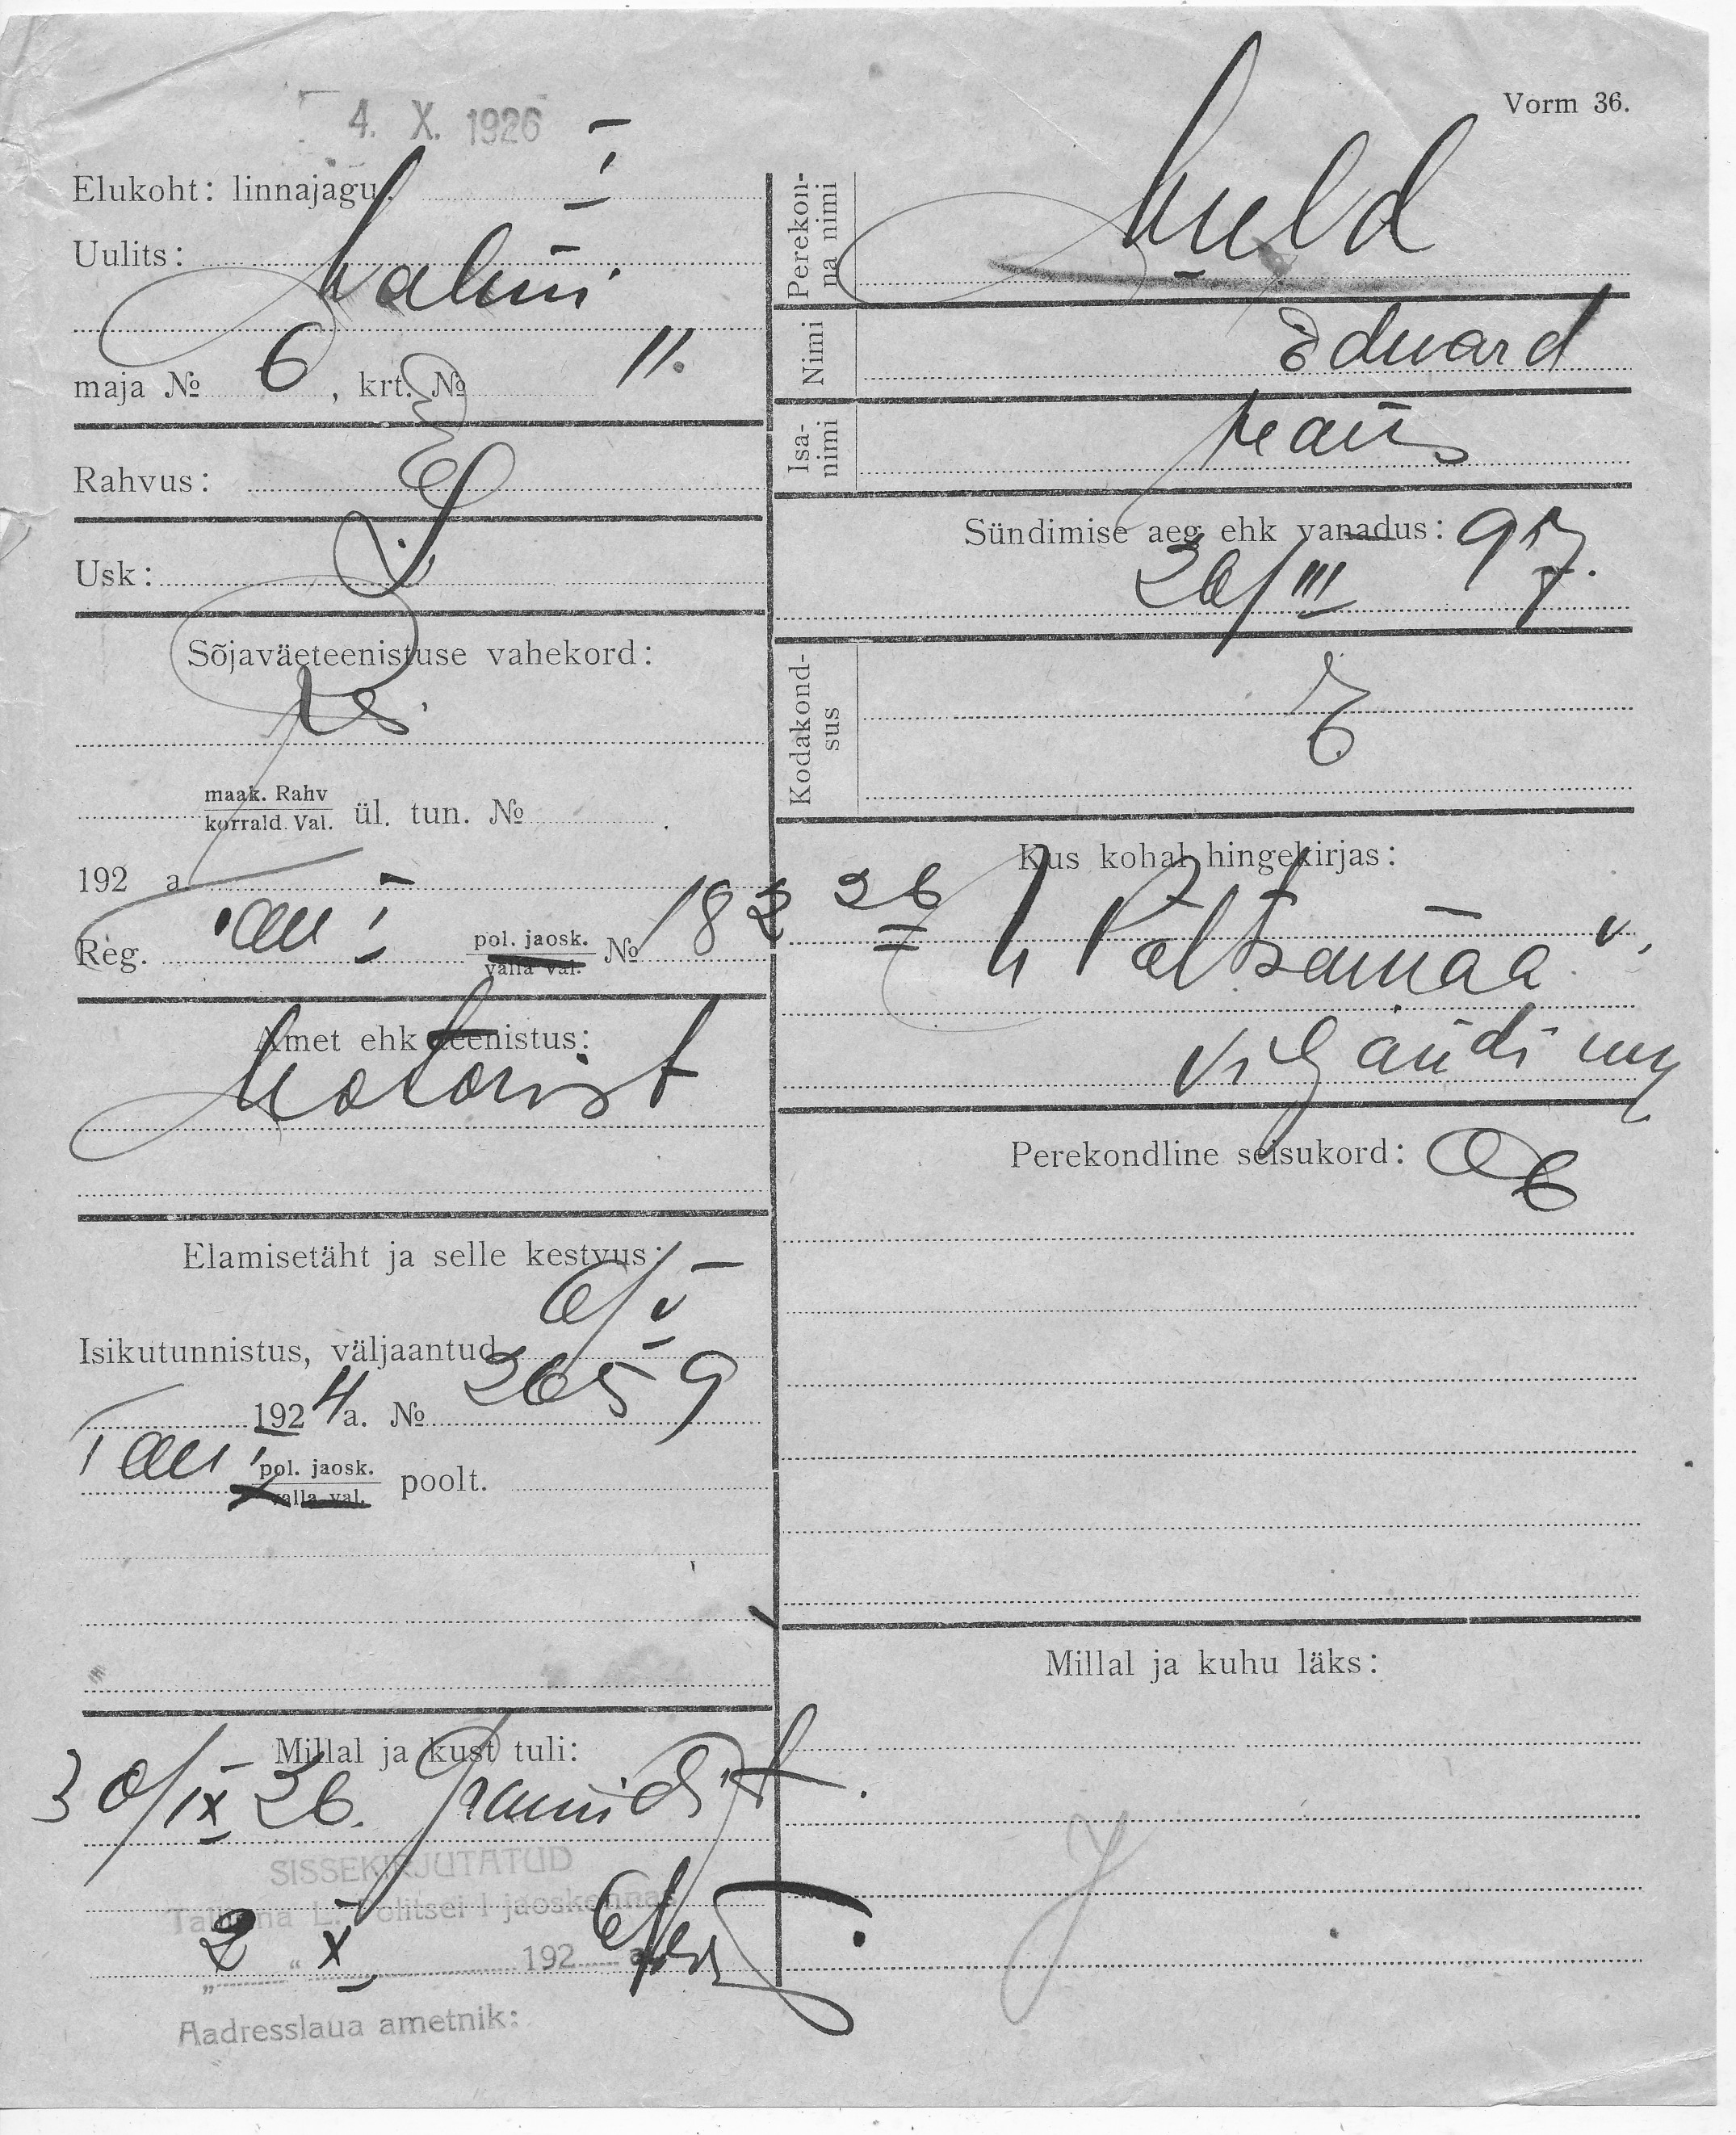 4. X. 1926
Vorm 36.
Elukoht: linnajagu I
Uulits:
maja № 6, krt. № 11.
Rahvus: E
Usk: L
Sõjaväeteenistuse vahekord:
maak. Rahv
korrald. Val. ül. tun. №
192 a.
Reg. I pol. jaosk. № 182 26
valla val.
Amet ehk teenistus:
Motorist
Elamisetäht ja selle kestvus:
6/V
Isikutunnistus, väljaantud
1924 a. № 2659
I pol. jaosk. poolt.
valla val.
Millal ja kust tuli:
30/IX 26.
SISSEKIRJUTATUD
Tallinna L. Politsei I jaoskonnas
„2“ X 1926 a.
Aadresslaua ametnik:
Perekonna nimi
Nimi Eduard
Isanimi
Sündimise aeg ehk vanadus:
26/III 97.
Kodakondsus E
Kus kohal hingekirjas:
Põltsamaa v.
Viljandi mk
Perekondline seisukord:
Millal ja kuhu läks: